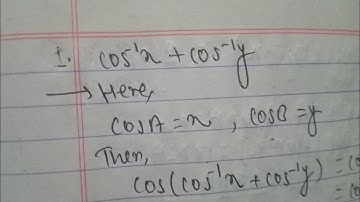 1. cos⁻¹x + cos⁻¹y
→ Here,
cosA = x, cosB = y
Then,
cos(cos⁻¹x + cos⁻¹y) = co
= co